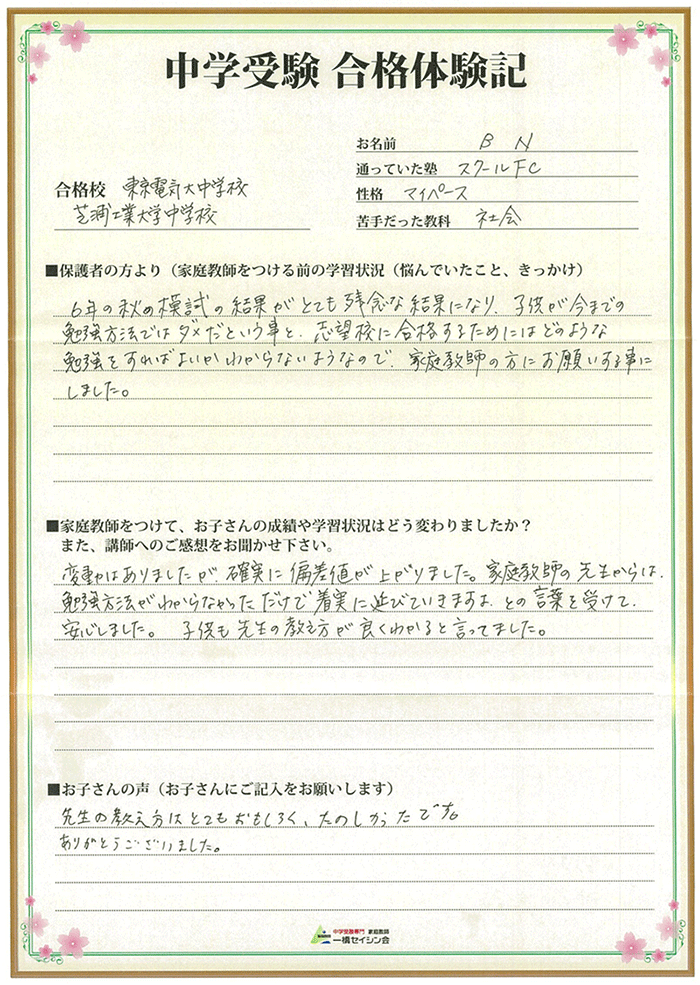 中学受験 合格体験記
お名前 B N
通っていた塾 スクールFC
合格校 東京電気大中学校
性格 マイペース
芝浦工業大学中学校
苦手だった教科 社会
■保護者の方より（家庭教師をつける前の学習状況（悩んでいたこと、きっかけ）
6年の秋の模試の結果がとても残念な結果になり、子供が今までの
勉強方法ではダメだという事と、志望校に合格するためにはどのような
勉強をすればよいかわからないようなので、家庭教師の方にお願いする事に
しました。
■家庭教師をつけて、お子さんの成績や学習状況はどう変わりましたか？
また、講師へのご感想をお聞かせ下さい。
変動はありましたが、確実に偏差値が上がりました。家庭教師の先生からは、
勉強方法がわからなかっただけで着実に延びていきますよ、との言葉を受けて、
安心しました。 子供も先生の教え方が良くわかると言ってました。
■お子さんの声（お子さんにご記入をお願いします）
先生の教え方はとてもおもしろく、たのしかったです。
ありがとうございました。
中学受験専門 家庭教師
一橋セイシン会